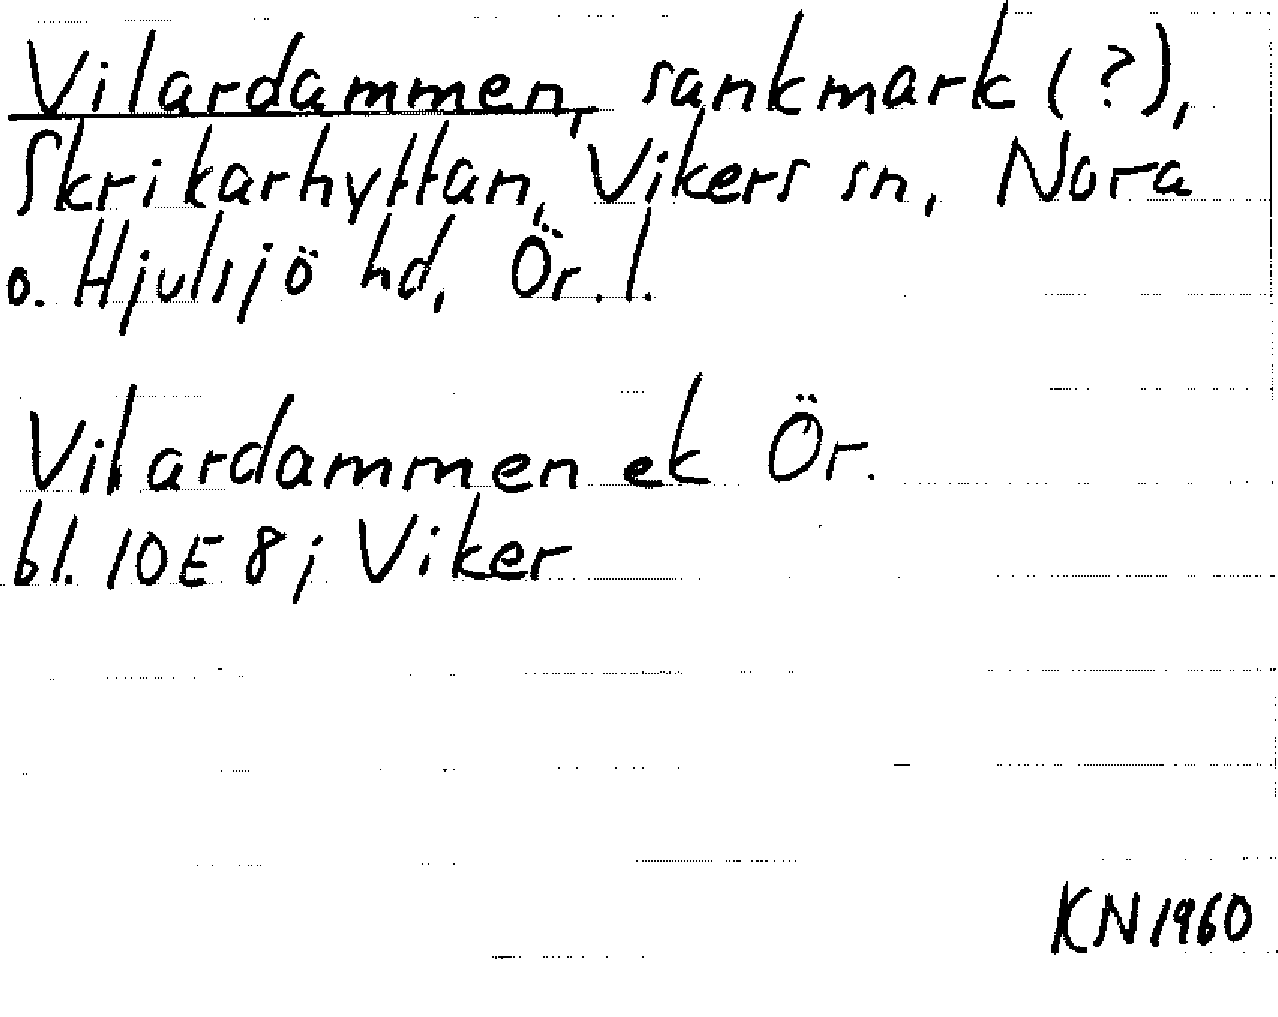 Vilardammen, sankmark (?),
Skrikarhyttan, Vikers sn, Nora
o. Hjulsjö hd, Ör. l.
Vilardammen ek Ör.
bl. 10E 8i Viker
KN 1960